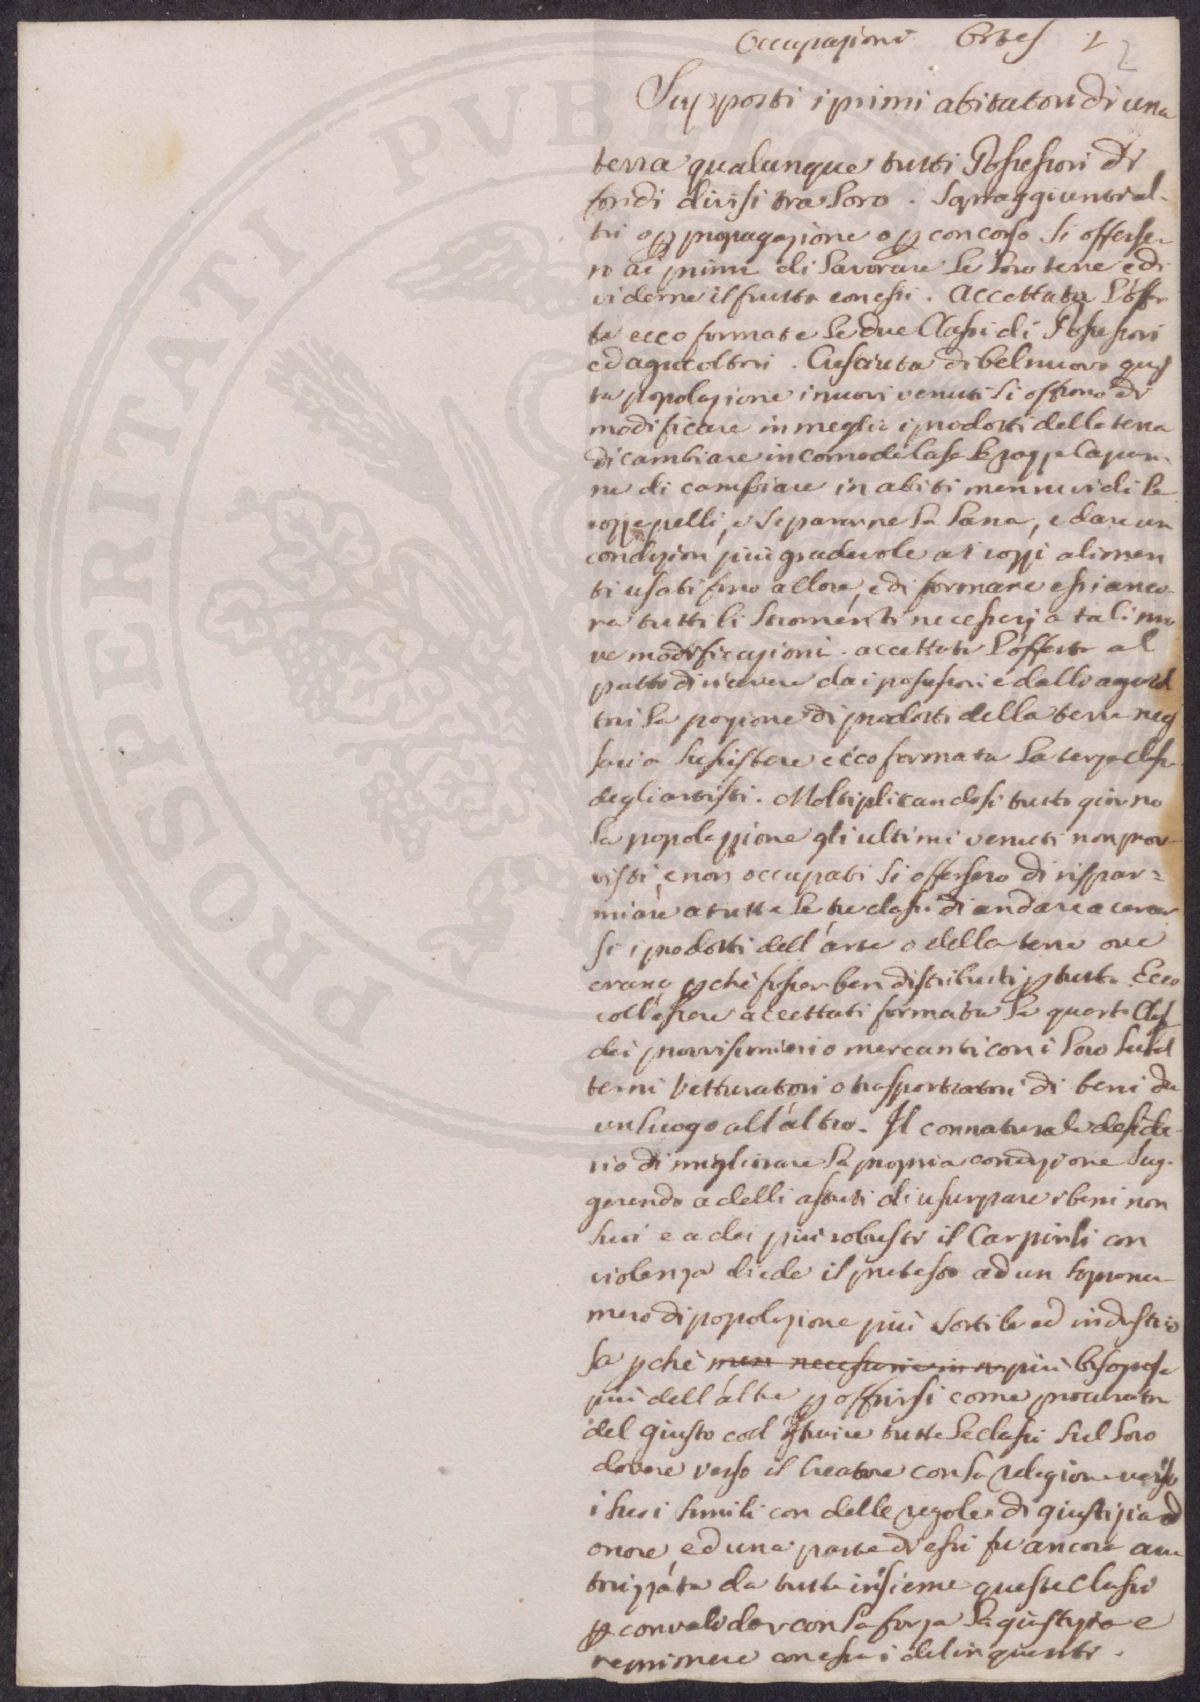 Occupazione Ortes 1 2
Supposti i primi abitatori di una
terra qualunque tutti Possessori di
fondi divisi tra loro. Sopraggiunti al-
tri o per propagazione o per concorso si offerse-
ro ai primi di lavorare le loro terre e di
viderne il frutto con essi. Accettata l'offer
ta ecco formate le due Classi di Possessori
ed agricoltori. Cresciuta di bel nuovo ques
ta popolazione i nuovi venuti si offrono di
modificare in meglio i prodotti della terra
di cambiare in comode case le rozze capan-
ne di cambiare in abiti men ruvidi le
rozze pelli, e separarne la lana, e dare un
condizion più gradevole ai rozzi alimen
ti usati fino allora, e di formare essi anco-
ra tutti li stromenti necessarj a tali nuo
ve modificazioni. accettata l'offerta al
patto di ricevere dai possessori e dalli agricol
tori la porzione di prodotti della terra neces
saria a sussistere ecco formata la terza classe
degli artisti. Moltiplicandosi tutto giorno
la popolazione gli ultimi venuti non prov-
visti, e non occupati si offersero di rispar-
miare a tutte le tre classi di andare a cercar
si i prodotti dell'arte o della terra ove
erano perchè fosser ben distribuiti per tutto. Ecco
coll'essere accettati formata la quarta Class
dei provvisionieri o mercanti con i loro subal
terni Vetturatori o trasportatori di beni da
un luogo all'altro. Il connaturale deside-
rio di migliorare la propria condizione sug-
gerendo a delli astuti di usurpare i beni non
suoi e a dei più robusti il carpirli con
violenza diede il pretesto ad un sopranu-
mero di popolazione più sottile ed industrio
sa perchè men necessaria più bisognosa
più dell'altra per offrirsi come procurator
del giusto coll'istruire tutte le classi sul loro
dovere verso il Creatore con la religione verso
i suoi simili con delle regole di giustizia ed
onore, ed una parte di essi fu ancora au
torizzata da tutte insieme queste classi
per convalidar con la forza la giustizia e
reprimere con essa i delinquenti.